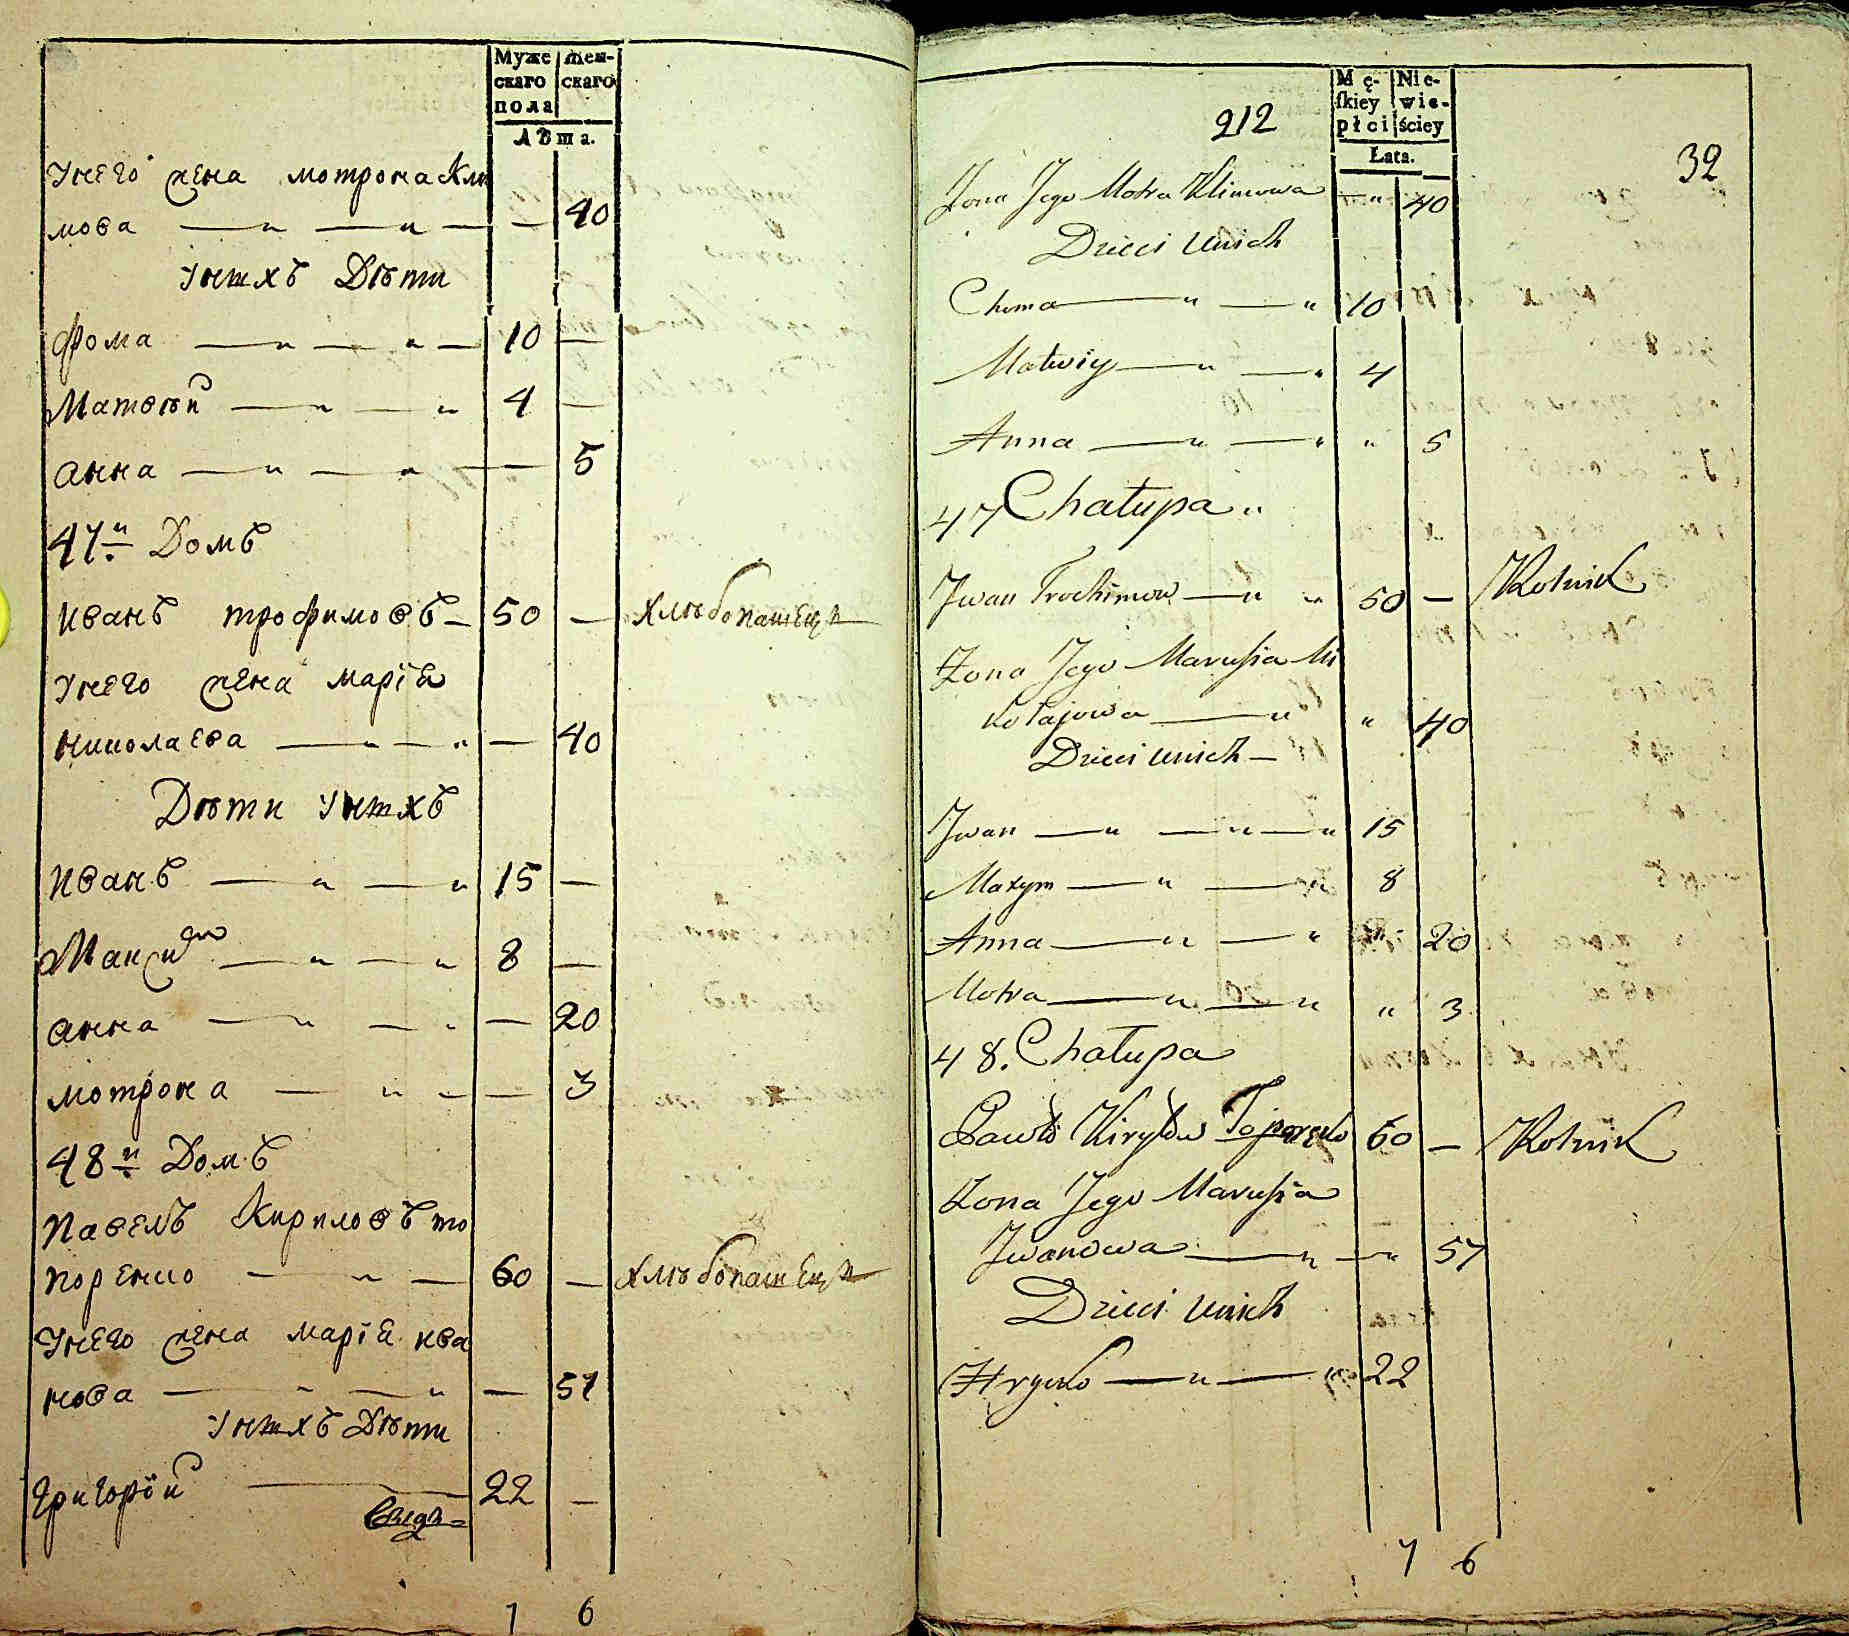 Муже
скаго
пола
жен-
скаго
Лѣта.
Унего жена мотрона Кли
мова — — — 40
Унихъ Дѣти
Фома — — 10 —
Матвѣй — — 4 —
анна — — — 5
47й Домъ
Иванъ трофимовъ — 50 — хлѣбопашецъ
Унего жена марія
николаева — — — 40
Дѣти Унихъ
Иванъ — — 15 —
Максим — — 8 —
анна — — — 20
мотрона — — — 3
48й Домъ
Павелъ Кириловъ то
поренко — — 60 — хлѣбопашецъ
Унего жена марія ива
нова — — — 57
Унихъ Дѣти
Григорій — 22 —
7 6
212
32
Mę-
skiey
płci
Nie-
wie-
ściey
Łata.
Żona Jego Motra Klimowa — " 40
Dzieci unich
Choma — " — " 10
Matwiy — " — " 4
Anna — " — " " 5
47 Chałupa "
Jwan Trochimow — " " 50 — Rolnik
Żona Jego Marusia Mi
kołajowa — " " 40
Dzieci unich —
Jwan — " — " — " 15
Maxym — " — " 8
Anna — " — " " 20
Motra — " — " " 3
48. Chałupa
Pawło Kiryłow Toporenko 60 — Rolnik
Żona Jego Marusia
Jwanowa — " — " 57
Dzieci unich
Hryćko — " — " 22
7 6